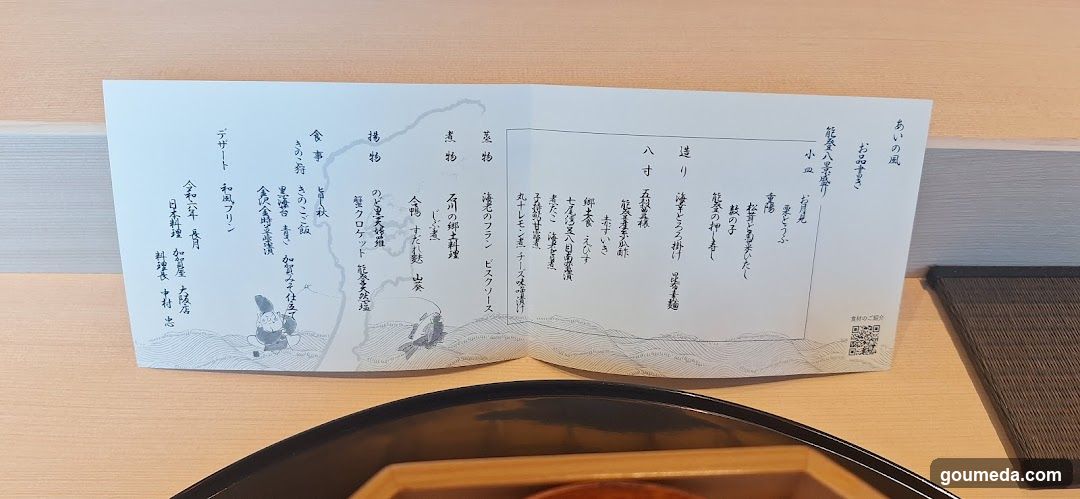 あいの風
お品書き
能登八景盛り
小皿 お月見
栗とうふ
重陽
松茸と菊菜いたし
数の子
能登の押し寿し
造り 海幸とろろ掛け
八寸 五穀豊穣
能登産茶瓜酢
赤ずいき
郷土食 えびす
七尾湾足八目南蛮漬
煮だこ
子持鮎甘露煮
丸十レモン煮 チーズ味噌漬け
蒸物 海老のフラン ビスクソース
煮物 石川の郷土料理
じぶ煮
合鴨 すだれ麩 山葵
揚物
蟹クロケット 能登天然塩
食事 旨し秋
きのこ狩 きのこご飯
黒海苔 青さ 加賀みそ仕立て
デザート 和風プリン
令和六年 長月
日本料理 加賀屋 大阪店
料理長 中村 忠
食材のご紹介
goumeda.com